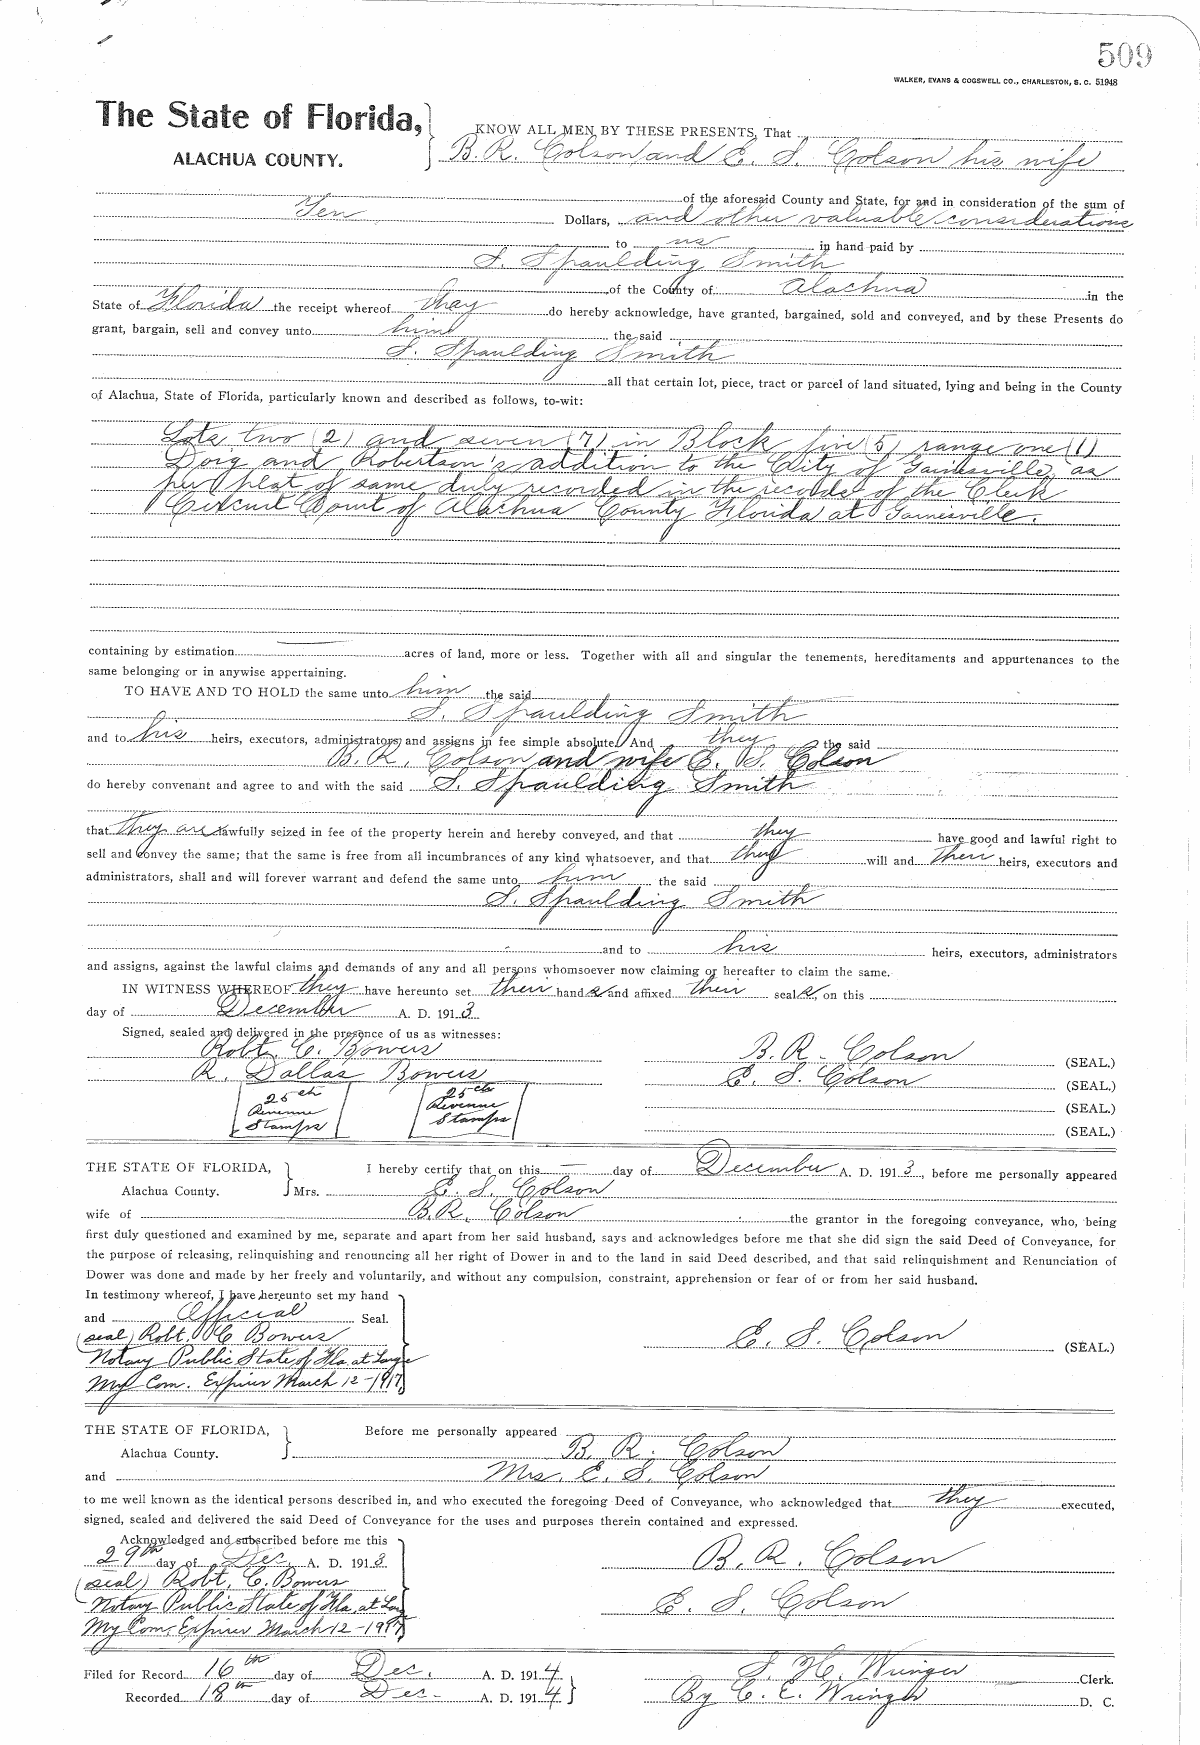 509
WALKER, EVANS & COGSWELL CO., CHARLESTON, S. C. 51948
The State of Florida,
ALACHUA COUNTY.
KNOW ALL MEN BY THESE PRESENTS, That
B. R. Colson and E. S. Colson his wife
of the aforesaid County and State, for and in consideration of the sum of
Ten Dollars, and other valuable considerations
to us in hand paid by
S. Spaulding Smith
of the County of Alachua in the
State of Florida the receipt whereof they do hereby acknowledge, have granted, bargained, sold and conveyed, and by these Presents do
grant, bargain, sell and convey unto him the said
S. Spaulding Smith
all that certain lot, piece, tract or parcel of land situated, lying and being in the County
of Alachua, State of Florida, particularly known and described as follows, to-wit:
Lots two (2) and seven (7) in Block five (5) range one (1)
Doig and Robertson's addition to the City of Gainesville, as
per plat of same duly recorded in the records of the Clerk
Circuit Court of Alachua County Florida at Gainesville.
containing by estimation acres of land, more or less. Together with all and singular the tenements, hereditaments and appurtenances to the
same belonging or in anywise appertaining.
TO HAVE AND TO HOLD the same unto him the said
S. Spaulding Smith
and to his heirs, executors, administrators and assigns in fee simple absolute. And they the said
B. R. Colson and wife E. S. Colson
do hereby convenant and agree to and with the said S. Spaulding Smith
that they are lawfully seized in fee of the property herein and hereby conveyed, and that they have good and lawful right to
sell and convey the same; that the same is free from all incumbrances of any kind whatsoever, and that they will and their heirs, executors and
administrators, shall and will forever warrant and defend the same unto him the said
S. Spaulding Smith
and to his heirs, executors, administrators
and assigns, against the lawful claims and demands of any and all persons whomsoever now claiming or hereafter to claim the same.
IN WITNESS WHEREOF they have hereunto set their hands and affixed their seals, on this
day of December A. D. 1913
Signed, sealed and delivered in the presence of us as witnesses:
Robt. C. Bowers
B. R. Colson (SEAL.)
R. Dallas Bowers
E. S. Colson (SEAL.)
(SEAL.)
(SEAL.)
25 cts
Revenue
Stamps
25 cts
Revenue
Stamps
THE STATE OF FLORIDA,
Alachua County.
I hereby certify that on this — day of December A. D. 1913, before me personally appeared
Mrs. E. S. Colson
wife of B. R. Colson the grantor in the foregoing conveyance, who, being
first duly questioned and examined by me, separate and apart from her said husband, says and acknowledges before me that she did sign the said Deed of Conveyance, for
the purpose of releasing, relinquishing and renouncing all her right of Dower in and to the land in said Deed described, and that said relinquishment and Renunciation of
Dower was done and made by her freely and voluntarily, and without any compulsion, constraint, apprehension or fear of or from her said husband.
In testimony whereof, I have hereunto set my hand
and Official Seal.
(seal) Robt. C Bowers
E. S. Colson (SEAL.)
Notary Public State of Fla, at Large
My Com. Expires March 12-1917
THE STATE OF FLORIDA,
Alachua County.
Before me personally appeared
B. R. Colson
and Mrs. E. S. Colson
to me well known as the identical persons described in, and who executed the foregoing Deed of Conveyance, who acknowledged that they executed,
signed, sealed and delivered the said Deed of Conveyance for the uses and purposes therein contained and expressed.
Acknowledged and subscribed before me this
29th day of Dec. A. D. 1913
B. R. Colson
(seal) Robt. C. Bowers
Notary Public State of Fla, at Large
E. S. Colson
My Com. Expires March 12-1917
Filed for Record 16th day of Dec. A. D. 1914
S. H. Wienges Clerk.
Recorded 18th day of Dec- A. D. 1914
By C. E. Wienges D. C.